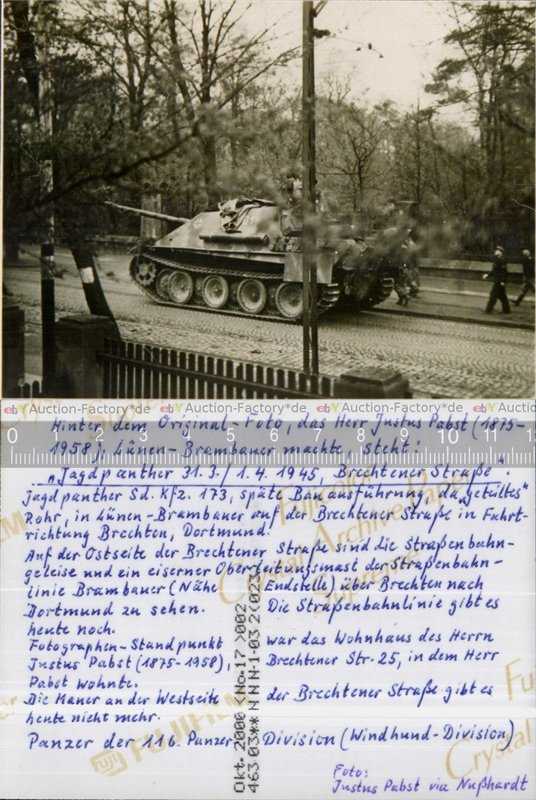 ebY Auction-Factory*de ebY Auction-Factory*de ebY Auction-Factory*de ebY Auction-Factory*de
Hinter dem Original-Foto, das Herr Justus Pabst (1875-
0 1 2 3 4 5 6 7 8 9 10
1958), Lünen-Brambauer machte, steht:
"Jagdpanther 31.3./1.4.1945, Brechtener Straße".
Jagdpanther Sd. Kfz. 173, späte Bauausführung, da „geteiltes"
Rohr, in Lünen-Brambauer auf der Brechtener Straße in Fahrt-
richtung Brechten, Dortmund.
Auf der Ostseite der Brechtener Straße sind die Straßenbahn-
geleise und ein eiserner Oberleitungsmast der Straßenbahn-
linie Brambauer (Nähe Endstelle) über Brechten nach
Dortmund zu sehen. Die Straßenbahnlinie gibt es
heute noch.
Fotographen-Standpunkt war das Wohnhaus des Herrn
Justus Pabst (1875-1958), Brechtener Str. 25, in dem Herr
Pabst wohnte.
Die Mauer an der Westseite der Brechtener Straße gibt es
heute nicht mehr.
Panzer der 116. Panzer Division (Windhund-Division)
Foto:
Justus Pabst via Nußhardt
Okt. 2000 <No. 17 >002
463 03** N N N-1-03 2(022)
FUJIFILM
Fujifilm
Crystal Archive Paper
Supreme